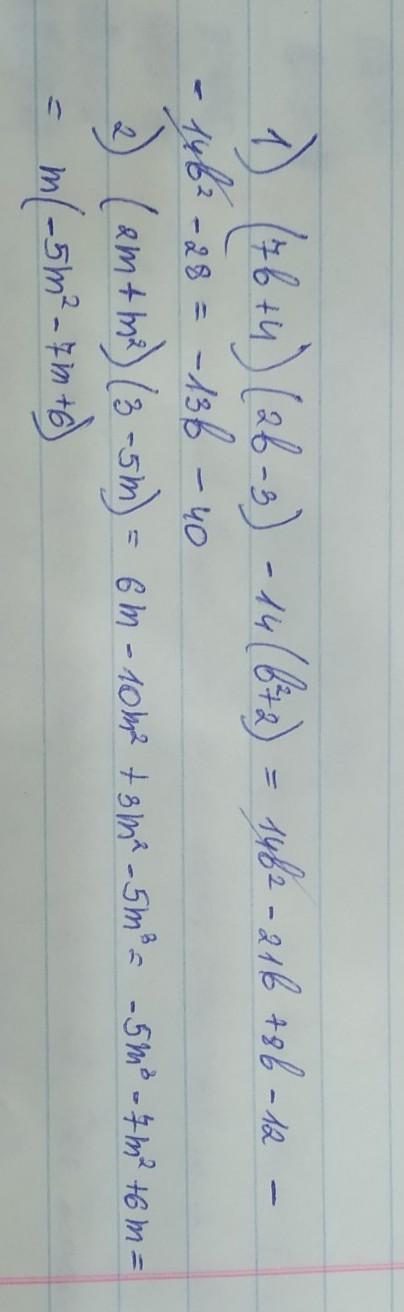 1) (7b+4)(2b-3) - 14(b²+2) = 14b² - 21b + 8b - 12 -
- 14b² - 28 = -13b - 40
2) (2m+m²)(3-5m) = 6m - 10m² + 3m² - 5m³ = -5m³ - 7m² + 6m =
= m(-5m² - 7m + 6)